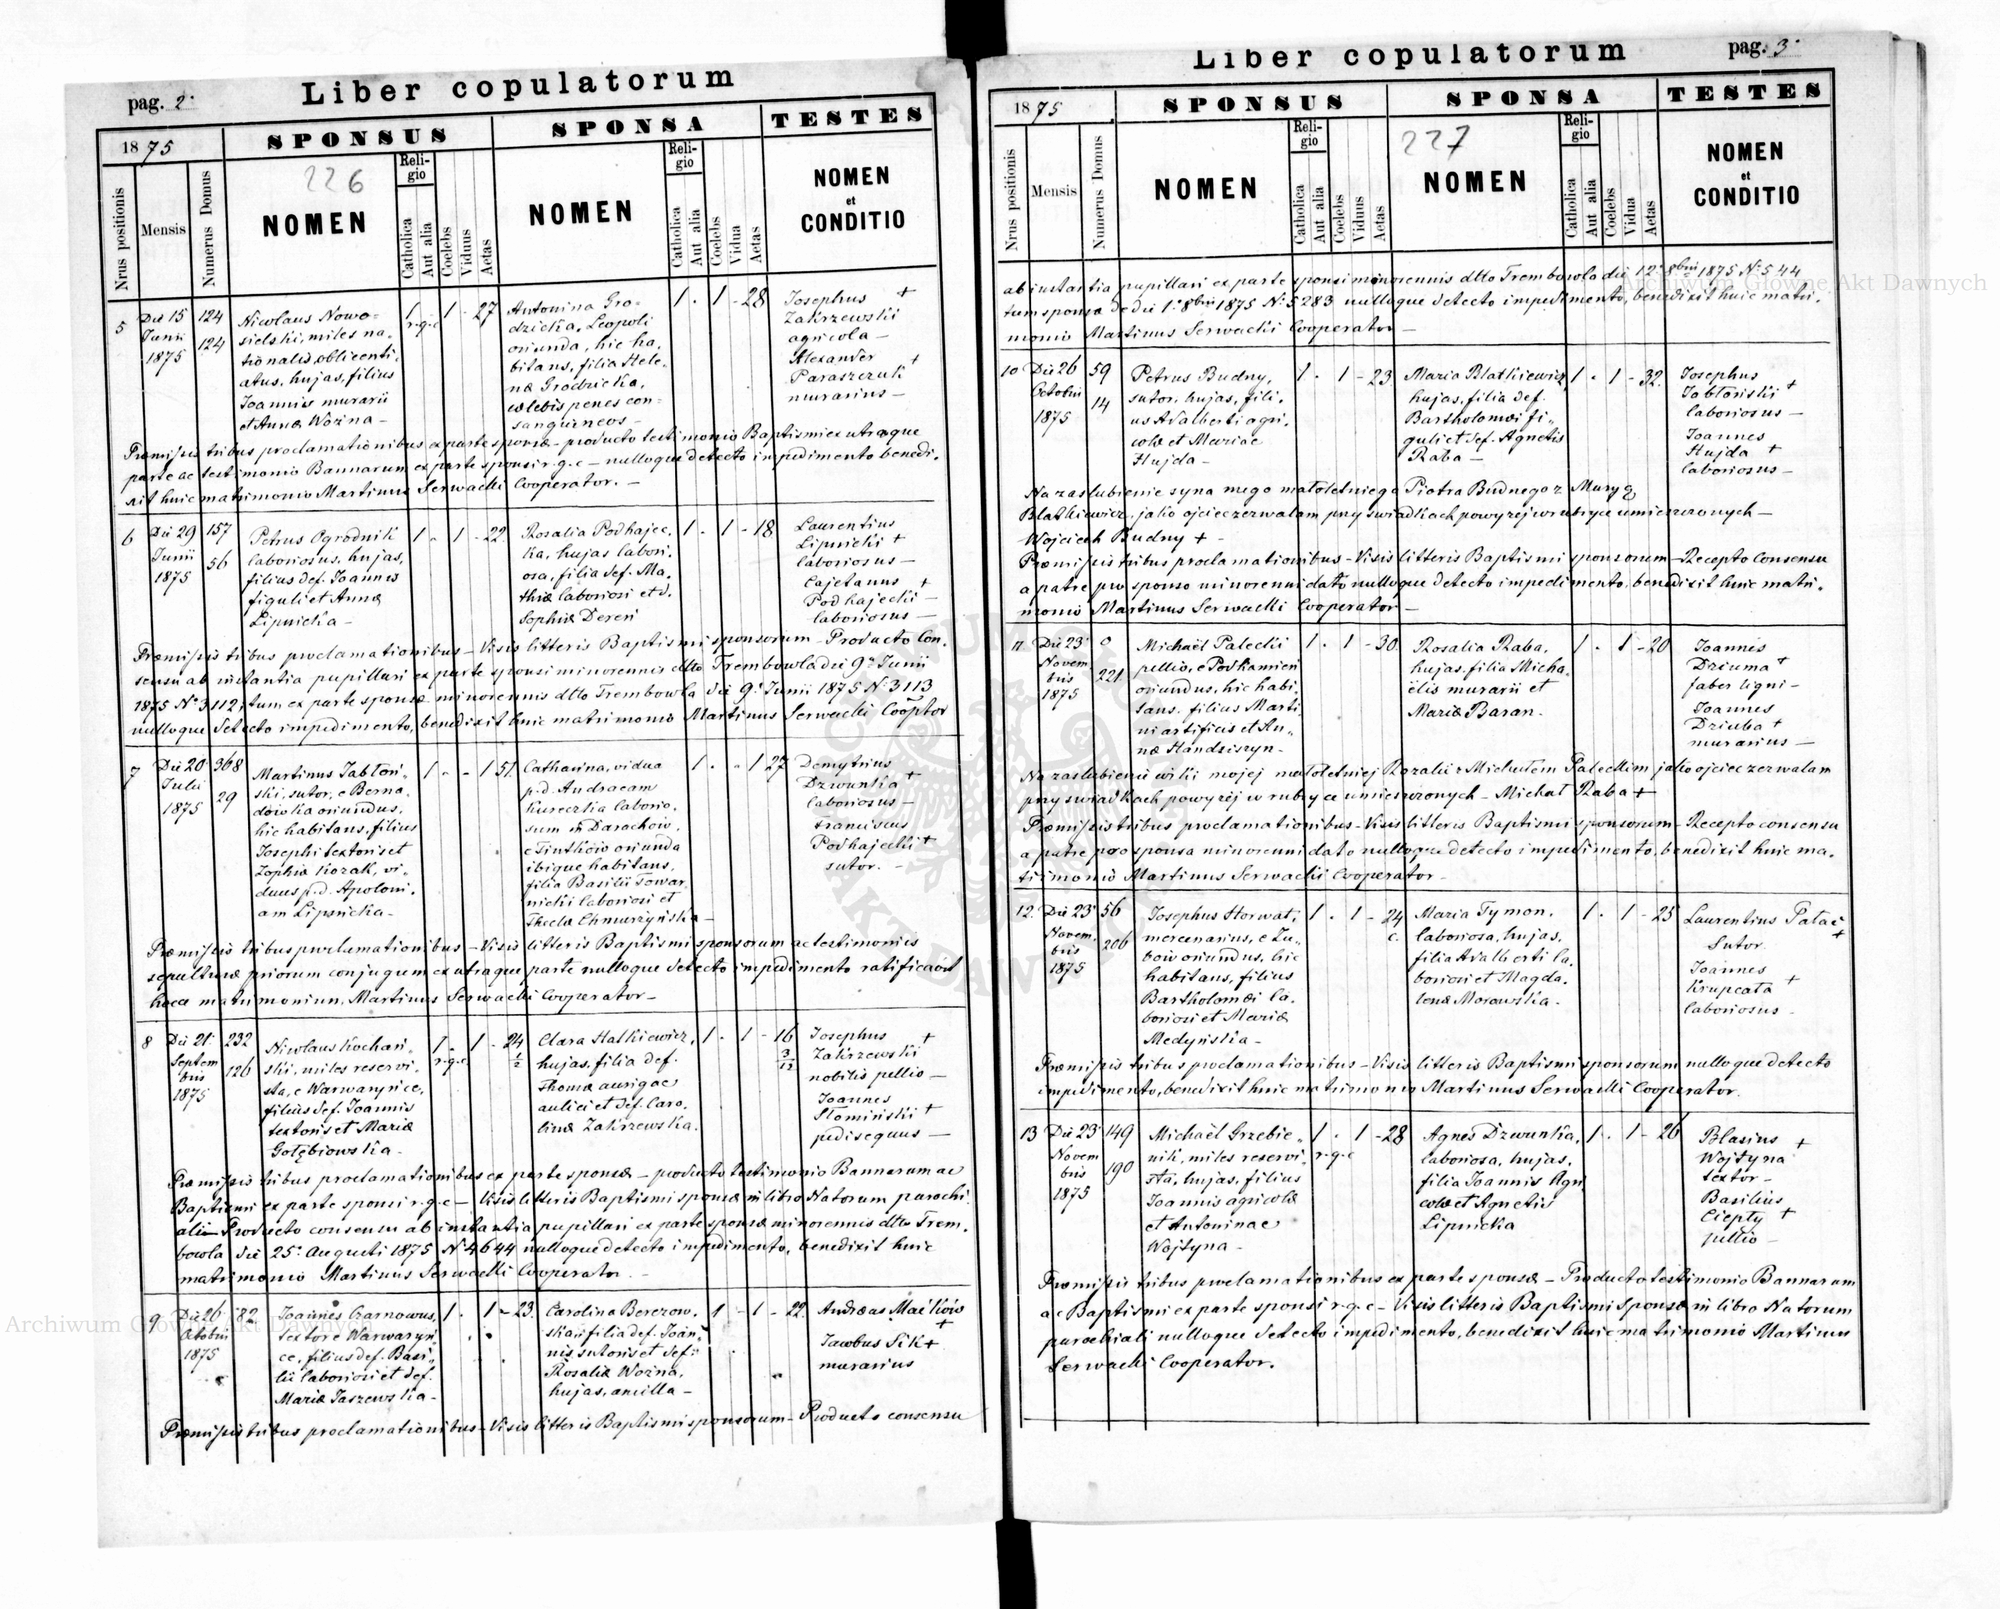 pag. 2.
Liber copulatorum
1875
SPONSUS
SPONSA
TESTES
Nrus positionis
Mensis
Numerus Domus
226
NOMEN
Religio
Catholica
Aut alia
Coelebs
Viduus
Aetas
NOMEN
Religio
Catholica
Aut alia
Coelebs
Vidua
Aetas
NOMEN
et
CONDITIO
5 Die 15 Junii 1875 124 124
Nicolaus Nowo-
sielski, miles na-
hujas, filius
Joannis murarii
et Annæ Woźna -
1 r.g.c 1 - 27
Antonina Gro-
dzicka, Leopoli
oriunda, hic ha-
bitans, filia Hele-
næ Grodzicka,
cœlebis penes con-
sanguineos -
1 . 1 - 28
Josephus +
Zakrzewski
agricola -
Alexander +
Paraszczuk
murarius -
Præmissis tribus proclamationibus ex parte sponsæ - producto testimonio Baptismi ex utraque
parte ac testimonio Bannorum ex parte sponsi r.g.c - nulloque detecto impedimento benedi-
xit huic matrimonio Martinus Serwacki Cooperator. -
6 Die 29 Junii 1875 157 56
Petrus Ogrodnik
laboriosus, hujas,
filius def. Joannis
figuli et Annæ
Lipnicka -
1 . 1 - 22
Rosalia Podhajec-
ka, hujas labori-
osa, filia def. Ma-
thiæ laboriosi et d.
Sophiæ Dereń
1 . 1 - 18
Laurentius
Lipnicki +
laboriosus -
Cajetanus +
Podhajecki -
laboriosus -
Præmissis tribus proclamationibus - Visis litteris Baptismi sponsorum - Producto Con-
sensu ab instantia pupillari ex parte sponsi minorennis dtto Trembowla die 9. Junii
1875 N. 3112, tum ex parte sponsæ minorennis dtto Trembowla die 9. Junii 1875 N. 3113
nulloque detecto impedimento, benedixit huic matrimonio Martinus Serwacki Cooptor
7 Die 20 Julii 1875 368 29
Martinus Jabłoń-
ski, sutor, e Berna-
dówka oriundus,
hic habitans, filius
Josephi textoris et
Zophiæ Kozak, vi-
duus p.d. Apoloni-
am Lipnicka -
1 . - 1 51.
Catharina, vidua
p.d. Andream
Kureczka laborio-
sum in Darachów,
e Tiutków oriunda
ibique habitans,
filia Basilii Towar-
nicki laboriosi et
Theclæ Chmurzyńska -
1 . - 1 27
Demytrius
Dzwunka +
laboriosus -
Franciscus
Podhajecki +
sutor. -
Præmissis tribus proclamationibus - Visis litteris Baptismi sponsorum ac testimoniis
sepulturæ priorum conjugum ex utraque parte nulloque detecto impedimento ratificavit
hocce matrimonium, Martinus Serwacki Cooperator -
8 Die 21. Septembris 1875 232 126
Nicolaus Kochań-
ski, miles reservi-
sta, e Warwaryńce,
filius def. Joannis
textoris et Mariæ
Gołębiowska -
1 r.g.c. 1 - 24 1/2
Clara Halkiewicz,
hujas, filia def.
Thomæ aurigae
aulici et def. Caro-
linæ Zakrzewska.
1 . 1 - 16 3/12
Josephus +
Zakrzewski
nobilis pellio -
Joannes
Słomiński +
pedisequus -
Præmissis tribus proclamationibus ex parte sponsæ - producto testimonio Bannorum ac
Baptismi ex parte sponsi r.g.c - Visis litteris Baptismi sponsæ in libro Natorum parochi-
ali - Producto consensu ab instantia pupillari ex parte sponsæ minorennis dtto Trem-
bowla die 25. Augusti 1875 N. 4644 nulloque detecto impedimento, benedixit huic
matrimonio Martinus Serwacki Cooperator. -
9 Die 26 Octobris 1875 82
Joannes Czarnowus,
textor e Warwaryń-
ce, filius def. Basi-
lii laboriosi et def.
Mariæ Jaszewska -
1 . 1 - 23.
Carolina Berezow-
ska filia def. Joan-
nis sutoris et def.
Rosaliæ Woźna,
hujas, ancilla -
1 - 1 - 22.
Andreas Maćków
+
Jacobus Sik +
murarius
Præmissis tribus proclamationibus - Visis litteris Baptismi sponsorum - Producto consensu
Liber copulatorum
pag. 3.
1875
SPONSUS
SPONSA
TESTES
Nrus positionis
Mensis
Numerus Domus
NOMEN
Religio
Catholica
Aut alia
Coelebs
Viduus
Aetas
227
NOMEN
Religio
Catholica
Aut alia
Coelebs
Vidua
Aetas
NOMEN
et
CONDITIO
ab instantia pupillari ex parte sponsi minorennis dtto Trembowla die 12. 8bris 1875 N. 5444
tum sponsæ de die 1. 8bris 1875 N. 5283 nulloque detecto impedimento, benedixit huic matri-
monio Martinus Serwacki Cooperator -
10 Die 26 Octobris 1875 59 14
Petrus Budny,
sutor, hujas, fili-
us Adalberti agri-
colæ et Mariae
Hujda -
1 . 1 - 23
Maria Blatkiewicz,
hujas, filia def.
Bartholomæi fi-
guli et def. Agnetis
Raba -
1 . 1 - 32.
Josephus
Jabłoński +
laboriosus -
Joannes
Hujda +
laboriosus -
Na zaslubienie syna mego małoletniego Piotra Budnego z Maryą
Blatkiewicz, jako ojciec zezwalam przy swiadkach powyzej w rubryce umieszczonych -
Wojciech Budny + -
Præmissis tribus proclamationibus - Visis litteris Baptismi sponsorum - Recepto Consensu
a patre pro sponso minorenni dato nulloque detecto impedimento, benedixit huic matri-
monio Martinus Serwacki Cooperator -
11 Die 23. Novembris 1875 0 221
Michaël Palecki
pellio, e Podkamień
oriundus, hic habi-
tans, filius Marti-
ni artificis et An-
næ Handziszyn -
1 . 1 - 30.
Rosalia Raba,
hujas, filia Micha-
ëlis murarii et
Mariæ Baran -
1 . 1 - 20
Joannes
Dziuma +
faber ligni -
Joannes
Dziuba +
murarius -
Na zaslubienie córki mojej małoletniej Rozalii z Michałem Paleckim jako ojciec zezwalam
przy swiadkach powyzej w rubryce umieszczonych - Michał Raba +
Præmissis tribus proclamationibus - Visis litteris Baptismi sponsorum - Recepto consensu
a patre pro sponsa minorenni dato nulloque detecto impedimento, benedixit huic ma-
trimonio Martinus Serwacki Cooperator -
12. Die 23 Novembris 1875 56 206
Josephus Horwat,
mercenarius, e Zu-
bów oriundus, hic
habitans, filius
Bartholomæi la-
boriosi et Mariæ
Medyńska -
1 . 1 - 24
Maria Tymon,
laboriosa, hujas,
filia Adalberti la-
boriosi et Magda-
lenæ Morawska -
1 . 1 - 25
Laurentius Pałac +
sutor
Joannes
Krupcata +
laboriosus -
Præmissis tribus proclamationibus - Visis litteris Baptismi sponsorum nulloque detecto
impedimento, benedixit huic matrimonio Martinus Serwacki Cooperator.
13 Die 23 Novembris 1875 149 190
Michaël Grzebie-
nik, miles reservi-
sta, hujas, filius
Joannis agricolæ
et Antoninae
Wojtyna -
1 . r.g.c 1 - 28
Agnes Dzwunka,
laboriosa, hujas,
filia Joannis Agri-
colæ et Agnetis
Lipnicka
1 . 1 - 26
Blasius +
Wojtyna
textor -
Basilius
Ciepły +
pellio -
Præmissis tribus proclamationibus ex parte sponsæ - Producto testimonio Bannorum
ac Baptismi ex parte sponsi r.g.c - Visis litteris Baptismi Sponsæ in libro Natorum
parochiali nulloque detecto impedimento, benedixit huic matrimonio Martinus
Serwacki Cooperator.
Archiwum Główne Akt Dawnych
Archiwum Główne Akt Dawnych